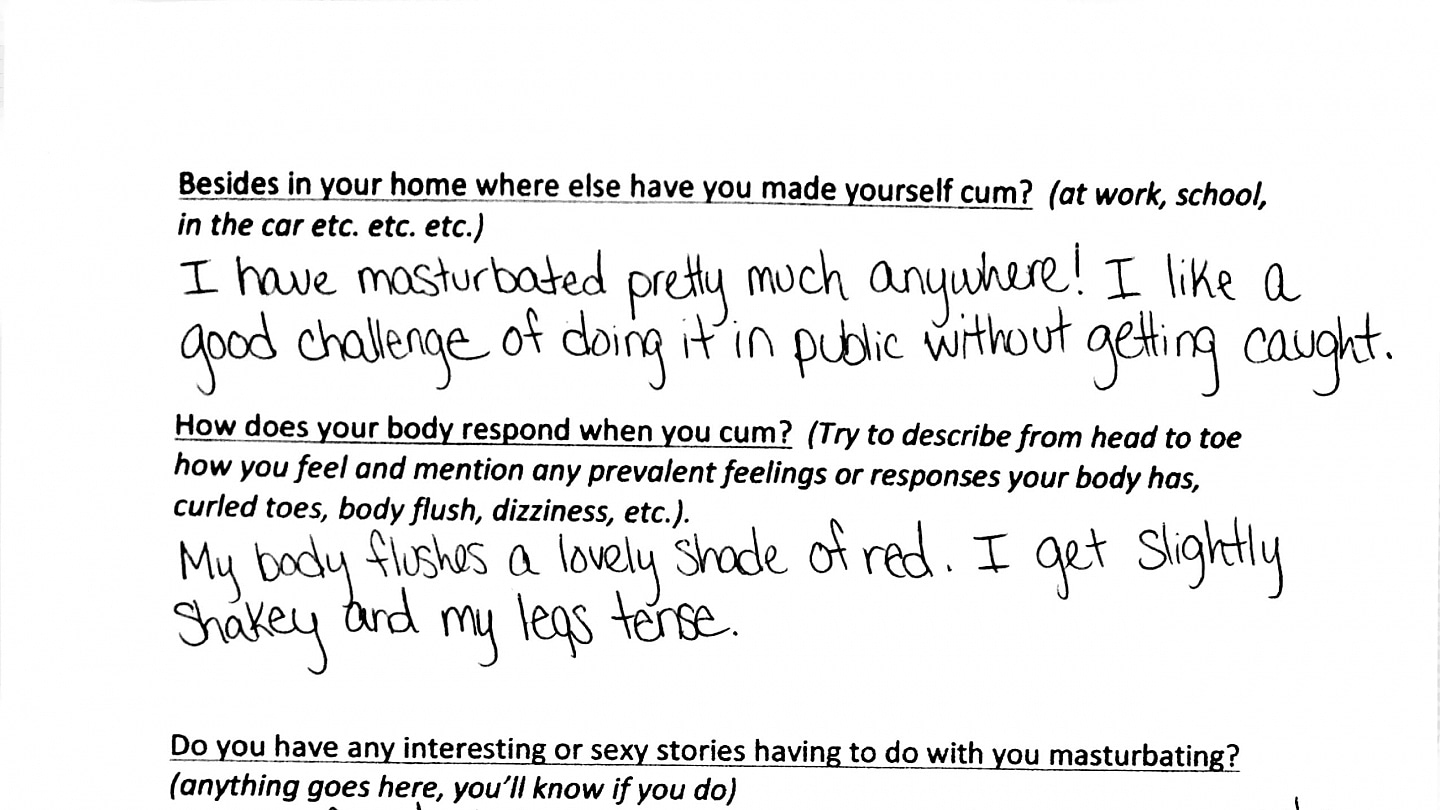 Besides in your home where else have you made yourself cum? (at work, school,
in the car etc. etc. etc.)
I have masturbated pretty much anywhere! I like a
good challenge of doing it in public without getting caught.
How does your body respond when you cum? (Try to describe from head to toe
how you feel and mention any prevalent feelings or responses your body has,
curled toes, body flush, dizziness, etc.).
My body flushes a lovely shade of red. I get slightly
shakey and my legs tense.
Do you have any interesting or sexy stories having to do with you masturbating?
(anything goes here, you'll know if you do)